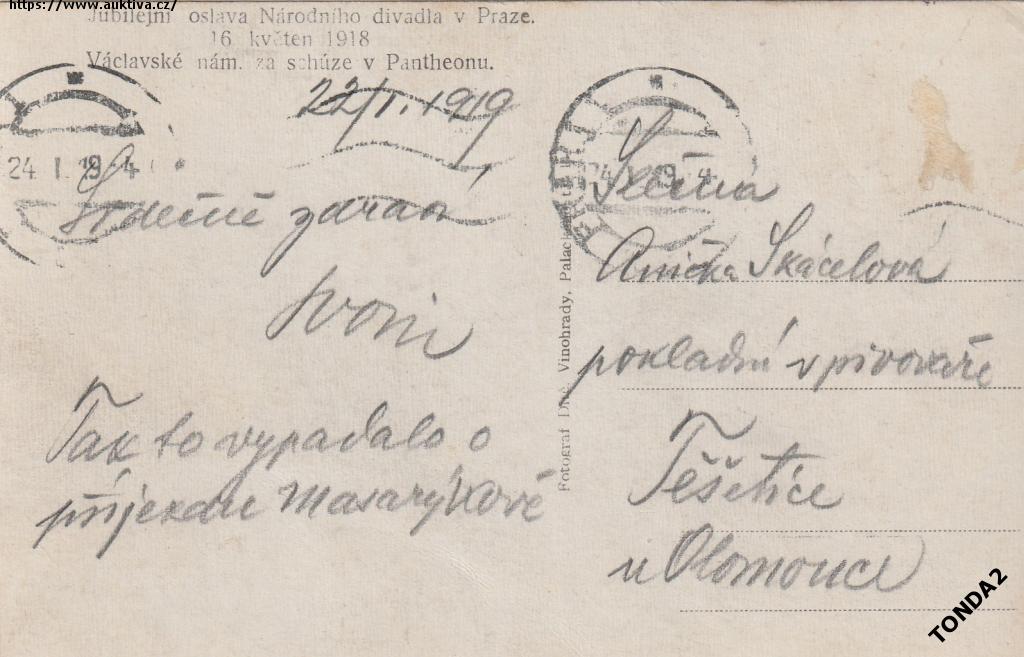 https://www.auktiva.cz/
Jubilejní oslava Národního divadla v Praze.
16. květen 1918
Václavské nám. za schůze v Pantheonu.
22/I. 1919
24 I. 19 4
Srdečné zdraví
Tak to vypadalo o
příjezdu Masarýkově
Slečna
Anička Skácelová
pokladní v pivovaře
Těšetice
u Olomouce
Fotograf Vinohrady, Palac
TONDA2